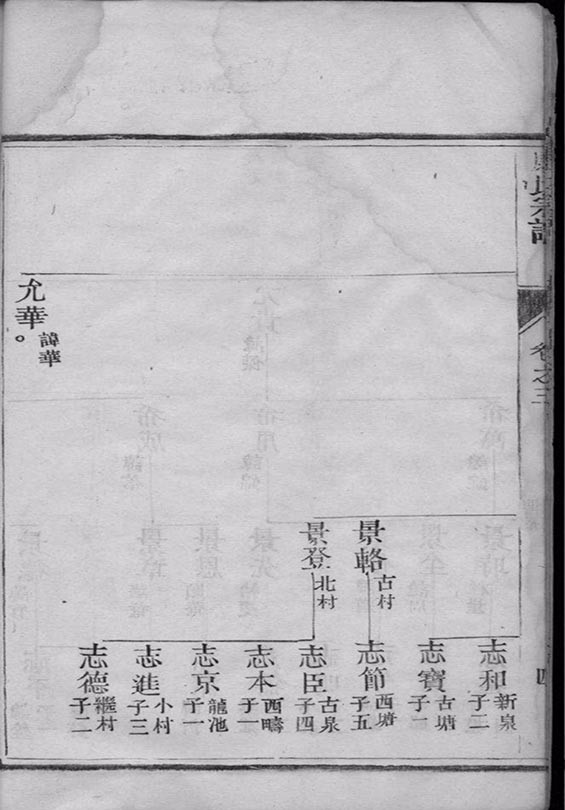 氏宗譜
卷之三
四
景輅 古村
景登 北村
志和 新泉 子二
志寶 古塘 子一
志節 西塘 子五
志臣 古泉 子四
志本 西疇 子一
志京 龍池 子一
志進 小村 子三
志德 繼村 子二
允華。 諱華